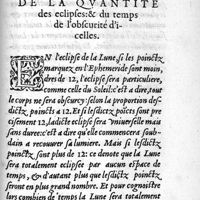 DE LA QVANTITE
des eclipses: & du temps
de l'obscurité d'i-
celles.
EN l'eclipse de la Lune, si les poinctz
marquez en l'Ephemeride sont main,
dres de 12, l'eclipse sera particuliere,
comme celle du Soleil: c'est a dire, tout
le corps ne sera obscurcy: selon la proportion des-
dictz poincts a 12. Et si lesdictz poictz sont pre
cisement 12, ladicte eclipse sera vniuerselle mais
sans duree: c'est a dire qu'elle commencera soub-
dain a recouurer sa lumiere. Mais si lesdictz
poinctz, sont plus de 12: ce denote que la Lune
sera totalement eclipsee par aucun espace de
temps, & d'autant plus que lesdictz poinctz
seront en plus grand nombre. Et pour cognoistre
lors combien de temps la Lune sera totalement